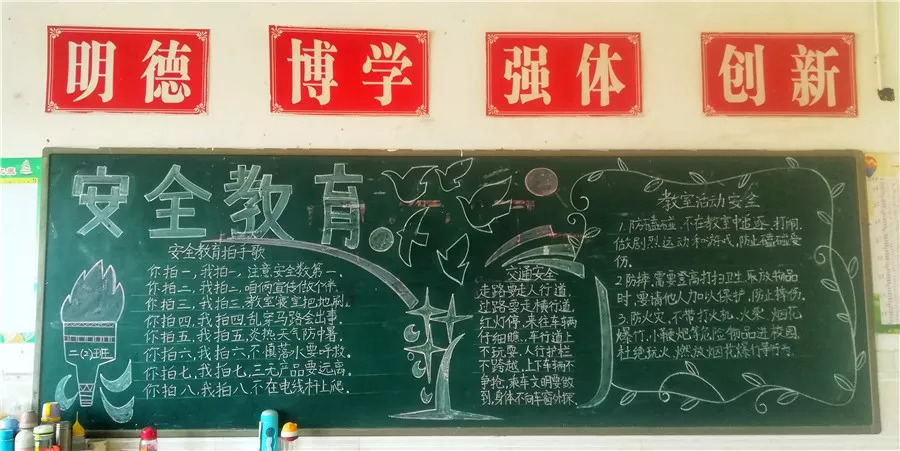 明德
博学
强体
创新
安全教育
安全教育拍手歌
你拍一,我拍一,注意安全数第一,
你拍二,我拍二,咱俩宣传做个伴,
你拍三,我拍三,教室寝室把地刷,
你拍四,我拍四,乱穿马路会出事,
你拍五,我拍五,炎热天气防中暑,
你拍六,我拍六,不慎落水要呼救,
你拍七,我拍七,三无产品要远离,
你拍八,我拍八,不在电线杆上爬。
二(2)班
交通安全
走路要走人行道,
过路要走横行道,
红灯停,来往车辆
仔细瞧。车行道上
不玩耍,人行护栏
不跨越,上下车辆不
争抢,乘车文明要做
到,身体不向车窗外探。
教室活动安全
1.防磕碰,不在教室中追逐、打闹,
做剧烈运动和游戏,防止磕碰受
伤。
2.防摔,需要登高打扫卫生、取放物品
时,要请他人加以保护,防止摔伤。
3.防火灾,不带打火机、火柴、烟花
爆竹、小鞭炮等危险物品进校园,
杜绝玩火、燃放烟花爆竹等行为。